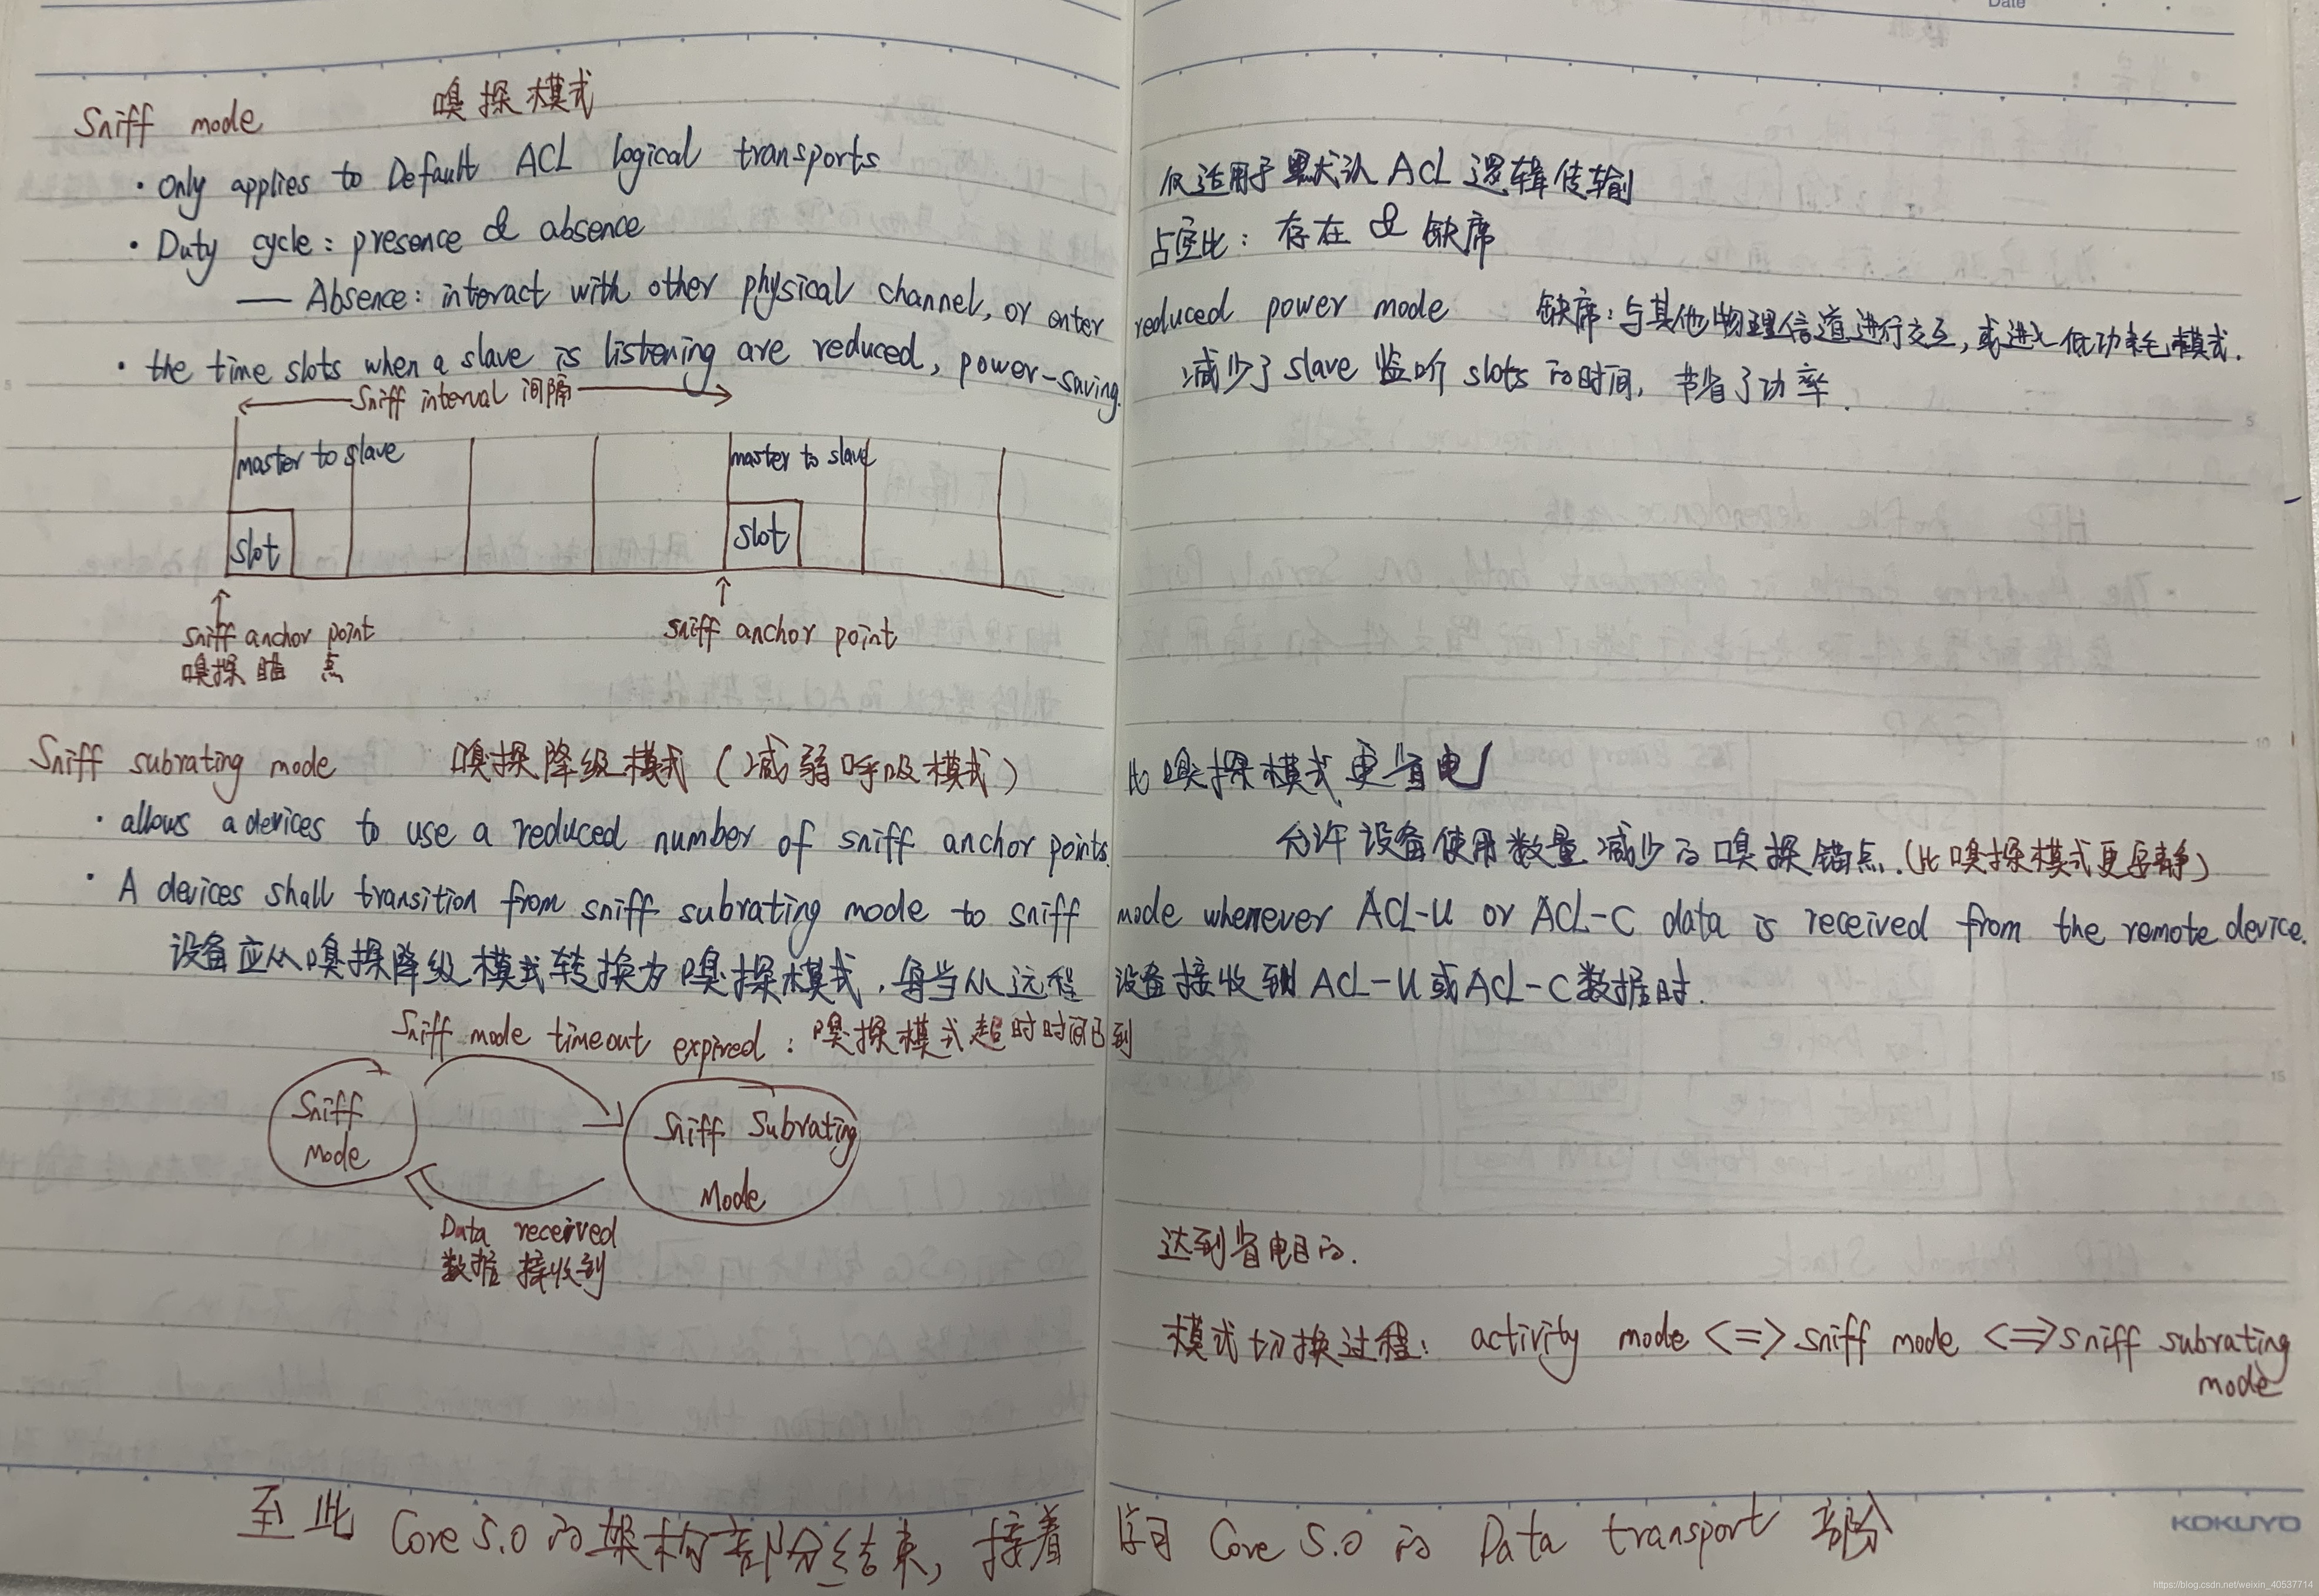 Date
Sniff mode 嗅探模式
· only applies to Default ACL logical transports 仅适用于默认ACL逻辑传输
· Duty cycle: presence & absence 占空比: 存在 & 缺席
— Absence: interact with other physical channel, or enter reduced power mode 缺席: 与其他物理信道进行交互, 或进入低功耗模式.
· the time slots when a slave is listening are reduced, power-saving. 减少了slave监听slots的时间, 节省了功率.
Sniff interval 间隔
master to slave master to slave
slot slot
sniff anchor point sniff anchor point
嗅探锚点
Sniff subrating mode 嗅探降级模式(减弱呼吸模式) 比嗅探模式更省电
· allows a devices to use a reduced number of sniff anchor points. 允许设备使用数量减少的嗅探锚点.(比嗅探模式更安静)
· A devices shall transition from sniff subrating mode to sniff mode whenever ACL-U or ACL-C data is received from the remote device.
设备应从嗅探降级模式转换为嗅探模式, 每当从远程设备接收到ACL-U或ACL-C数据时.
Sniff mode timeout expired: 嗅探模式超时时间已到
Sniff mode
Sniff Subrating Mode
Data received
数据接收到
达到省电目的.
模式切换过程: activity mode <=> sniff mode <=> sniff subrating
mode
至此 Core 5.0的架构部分结束, 接着学习 Core 5.0 的 Data transport 部分
KOKUYO
https://blog.csdn.net/weixin_40537714